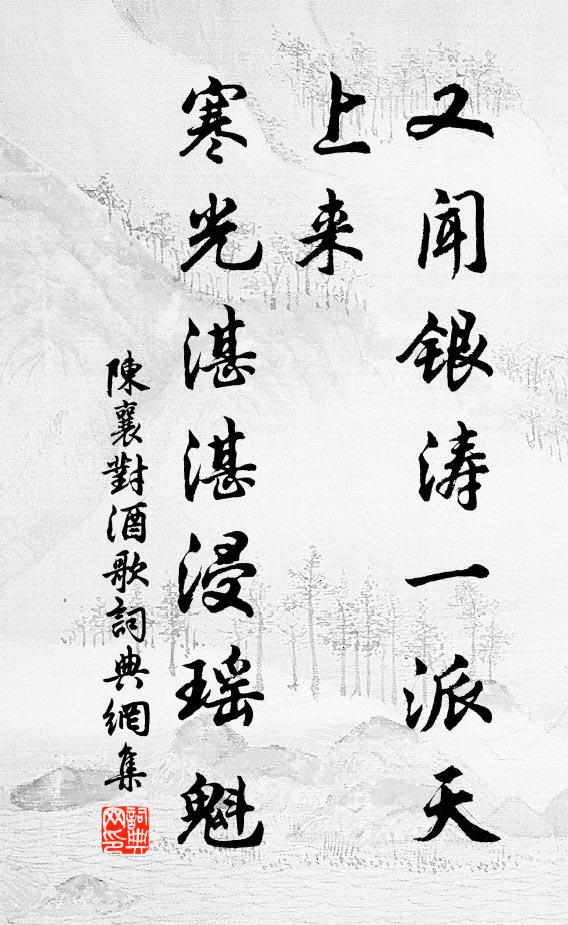 又闻银涛一派天
上来
寒光湛湛浸瑶魁
陳襄對酒歌詞典網集
詞典
网印